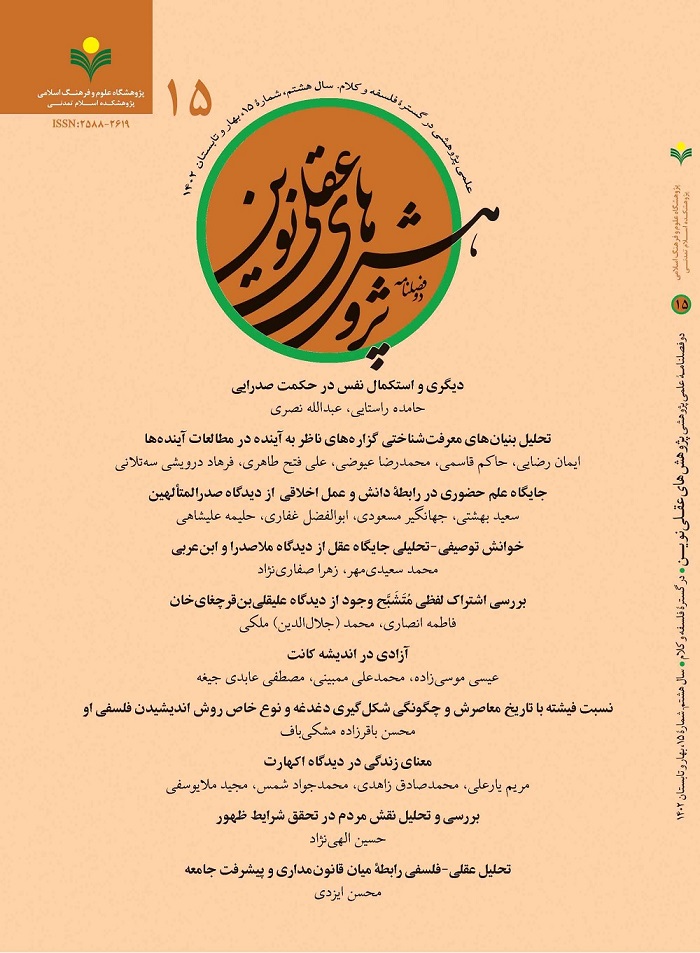 پژوهشگاه علوم و فرهنگ اسلامی
پژوهشکده اسلام تمدنی
ISSN:۲۵۸۸-۲۶۱۹
۱۵
علمی پژوهشی در گسترهٔ فلسفه و کلام. سال هشتم، شمارهٔ ۱۵، بهار و تابستان ۱۴۰۲
دوفصلنامه
پژوهش‌های عقلی نوین
دیگری و استکمال نفس در حکمت صدرایی
حامده راستایی، عبدالله نصری
تحلیل بنیان‌های معرفت‌شناختی گزاره‌های ناظر به آینده در مطالعات آینده‌ها
ایمان رضایی، حاکم قاسمی، محمدرضا عیوضی، علی فتح طاهری، فرهاد درویشی سه‌تلانی
جایگاه علم حضوری در رابطهٔ دانش و عمل اخلاقی از دیدگاه صدرالمتألهین
سعید بهشتی، جهانگیر مسعودی، ابوالفضل غفاری، حلیمه علیشاهی
خوانش توصیفی-تحلیلی جایگاه عقل از دیدگاه ملاصدرا و ابن‌عربی
محمد سعیدی‌مهر، زهرا صفاری‌نژاد
بررسی اشتراک لفظی مُتَشَبَّح وجود از دیدگاه علیقلی‌بن‌قرچغای‌خان
فاطمه انصاری، محمد (جلال‌الدین) ملکی
آزادی در اندیشه کانت
عیسی موسی‌زاده، محمدعلی ممبینی، مصطفی عابدی جیغه
نسبت فیشته با تاریخ معاصرش و چگونگی شکل‌گیری دغدغه و نوع خاص روش اندیشیدن فلسفی او
محسن باقرزاده مشکی‌باف
معنای زندگی در دیدگاه اکهارت
مریم یارعلی، محمدصادق زاهدی، محمدجواد شمس، مجید ملایوسفی
بررسی و تحلیل نقش مردم در تحقق شرایط ظهور
حسین الهی‌نژاد
تحلیل عقلی-فلسفی رابطهٔ میان قانون‌مداری و پیشرفت جامعه
محسن ایزدی
پژوهشگاه علوم و فرهنگ اسلامی
پژوهشکده اسلام تمدنی
۱۵
دوفصلنامهٔ علمی پژوهشی پژوهش‌های عقلی نوین • در گسترهٔ فلسفه و کلام • سال هشتم، شمارهٔ ۱۵، بهار و تابستان ۱۴۰۲